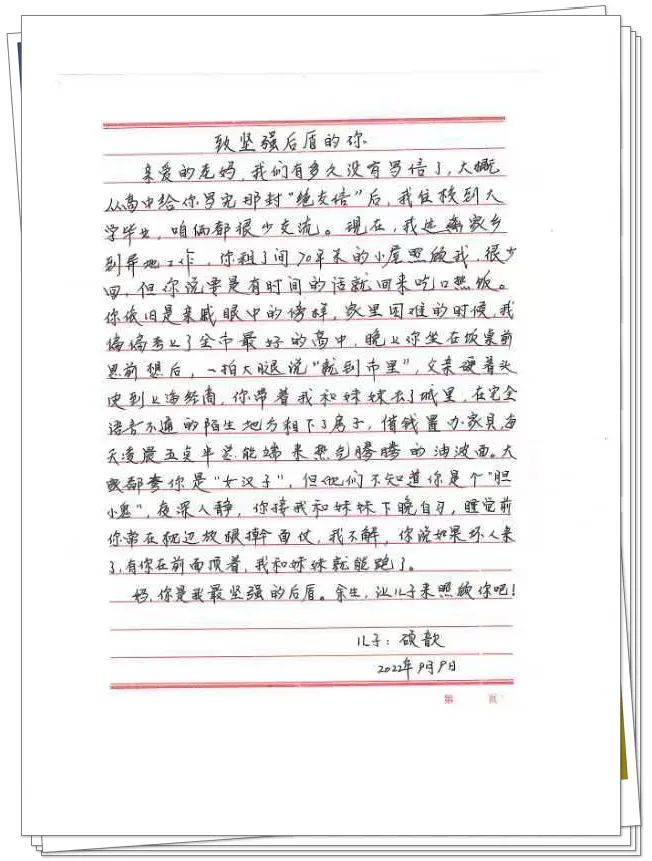 致坚强后盾的你
亲爱的老妈，我们有多久没有写信了，大概
从高中给你写完那封“绝交信”后，我住校到大
学毕业，咱俩都很少交流。现在，我远离家乡
到异地工作，你租了间70年末的小屋照顾我，很少
回，但你说要是有时间的话就回来吃口热饭。
你依旧是亲戚眼中的榜样，家里困难的时候，我
偏偏考上了全市最好的高中，晚上你坐在饭桌前
思前想后，一拍大腿说“就到市里”，父亲硬着头
皮到上海经商，你带着我和妹妹去了城里，在完全
语言不通的陌生地方租下了房子，借钱置办家具，每
天凌晨五点半总能端来热气腾腾的油泼面。大
家都夸你是“女汉子”，但他们不知道你是个“胆
小鬼”，夜深人静，你接我和妹妹下晚自习，睡觉前
你常在枕边放眼擀面仗，我不解，你说如果坏人来
了，有你在前面顶着，我和妹妹就能跑了。
妈，你是我最坚强的后盾。余生，让儿子来照顾你吧！
儿子：硕歆
2022年9月9日
第 页